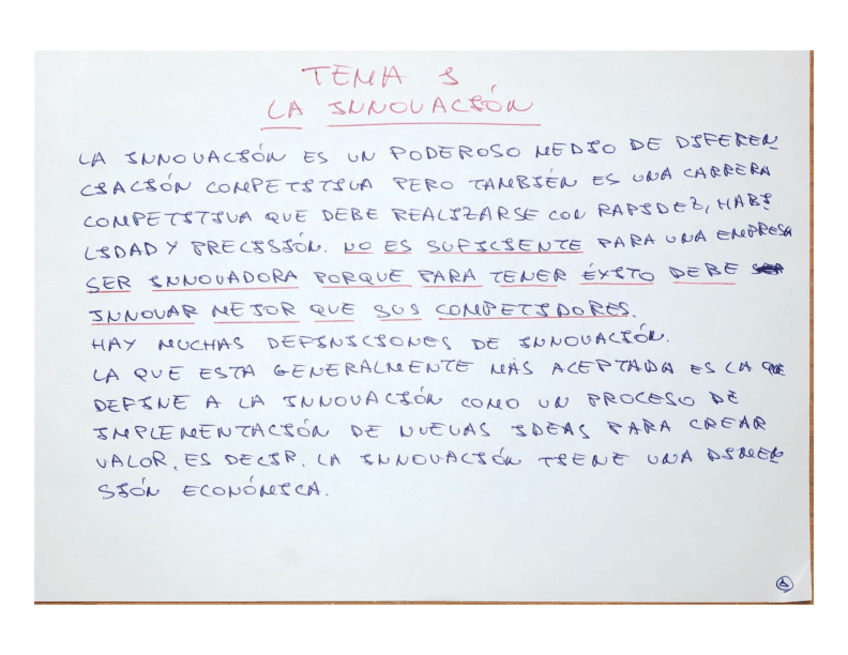 TEMA 1
LA INNOVACIÓN
LA INNOVACIÓN ES UN PODEROSO MEDIO DE DIFEREN
CIACIÓN COMPETITIVA PERO TAMBIÉN ES UNA CARRERA
COMPETITIVA QUE DEBE REALIZARSE CON RAPIDEZ, HABI
LIDAD Y PRECISIÓN. NO ES SUFICIENTE PARA UNA EMPRESA
SER INNOVADORA PORQUE PARA TENER ÉXITO DEBE
INNOVAR MEJOR QUE SUS COMPETIDORES.
HAY MUCHAS DEFINICIONES DE INNOVACIÓN.
LA QUE ESTA GENERALMENTE MÁS ACEPTADA ES LA QUE
DEFINE A LA INNOVACIÓN COMO UN PROCESO DE
IMPLEMENTACIÓN DE NUEVAS IDEAS PARA CREAR
VALOR, ES DECIR, LA INNOVACIÓN TIENE UNA DIMEN
SIÓN ECONÓMICA.